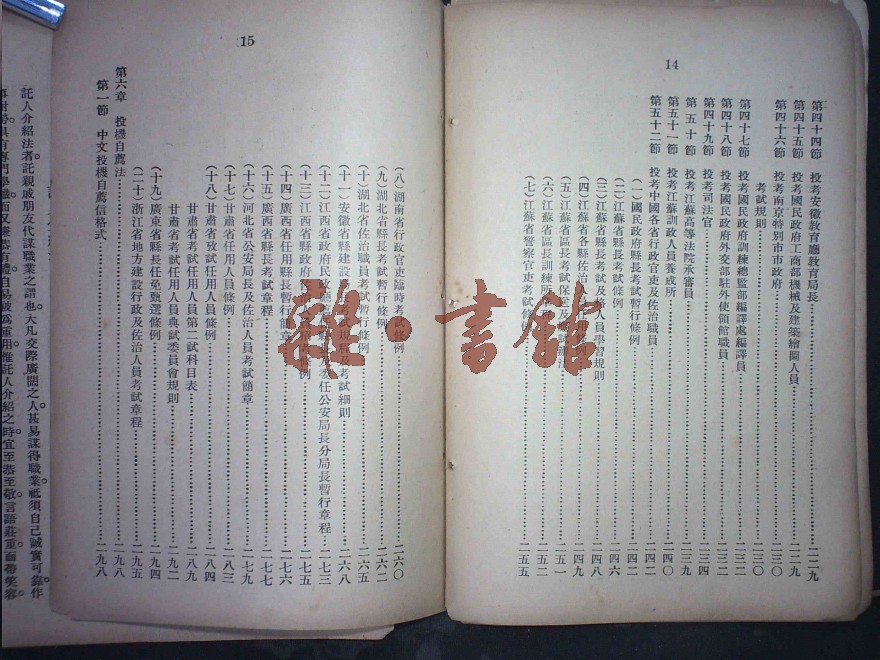 14
第四十四節 投考安徽教育廳教育局長……二二九
第四十五節 投考國民政府工商部機械及建築繪圖人員……二二九
第四十六節 投考南京特別市市政府……二三〇
考試規則……二三〇
第四十七節 投考國民政府訓練總監部編譯處編譯員……二三七
第四十八節 投考國民政府外交部駐外使領館職員……二三八
第四十九節 投考司法官……二三九
第五十節 投考江蘇高等法院承審員……二三九
第五十一節 投考江蘇訓政人員養成所……二四〇
第五十二節 投考中國各省行政官吏及佐治職員……二四二
(一)國民政府縣長考試暫行條例……二四二
(二)江蘇省縣長考試條例……二四四
(三)江蘇省縣長考試及格人員學習規則……二四八
(四)江蘇省各縣佐治人員任用條例……二四九
(五)江蘇省區長考試保妥及……二五一
(六)江蘇省區長訓練所……二五二
(七)江蘇省警察官吏考試條例……二五五
15
(八)湖南省行政官吏臨時考試條例……二六〇
(九)湖北省縣長考試暫行條例……二六二
(十)湖北省佐治職員考試暫行條例……二六五
(十一)安徽省縣建設局長考試規程及考試細則……二六八
(十二)江西省政府民政廳委任公安局長分局長暫行章程……二七三
(十三)江西省縣政府佐治……條例……二七三
(十四)廣西省任用縣長暫行簡章……二七六
(十五)廣西省縣長考試章程……二七七
(十六)河北省公安局長及佐治人員考試簡章……二七七
(十七)甘肅省任用人員條例……二八三
(十八)甘肅省攷試任用人員條例……二八四
甘肅省考試任用人員第二試科目表……
甘肅省考試任用人員典試委員會規則……二九二
(十九)廣東省縣長任免甄選條例……二九四
(二十)浙江省地方建設行政及佐治人員考試章程……二九五
第六章 投機自薦法……二九八
第一節 中文投機自薦信格式……二九八
託人介紹法者。託親戚朋友代謀職業之謂也。大凡交際廣闊之人。甚易謀得職業。祇須自己誠實可靠。作
事耐勞。具有專門學識。而又謙恭有禮。自易被爲重用。惟託人介紹之時。宜至恭至敬。言語莊重。面帶笑容
薮·書館